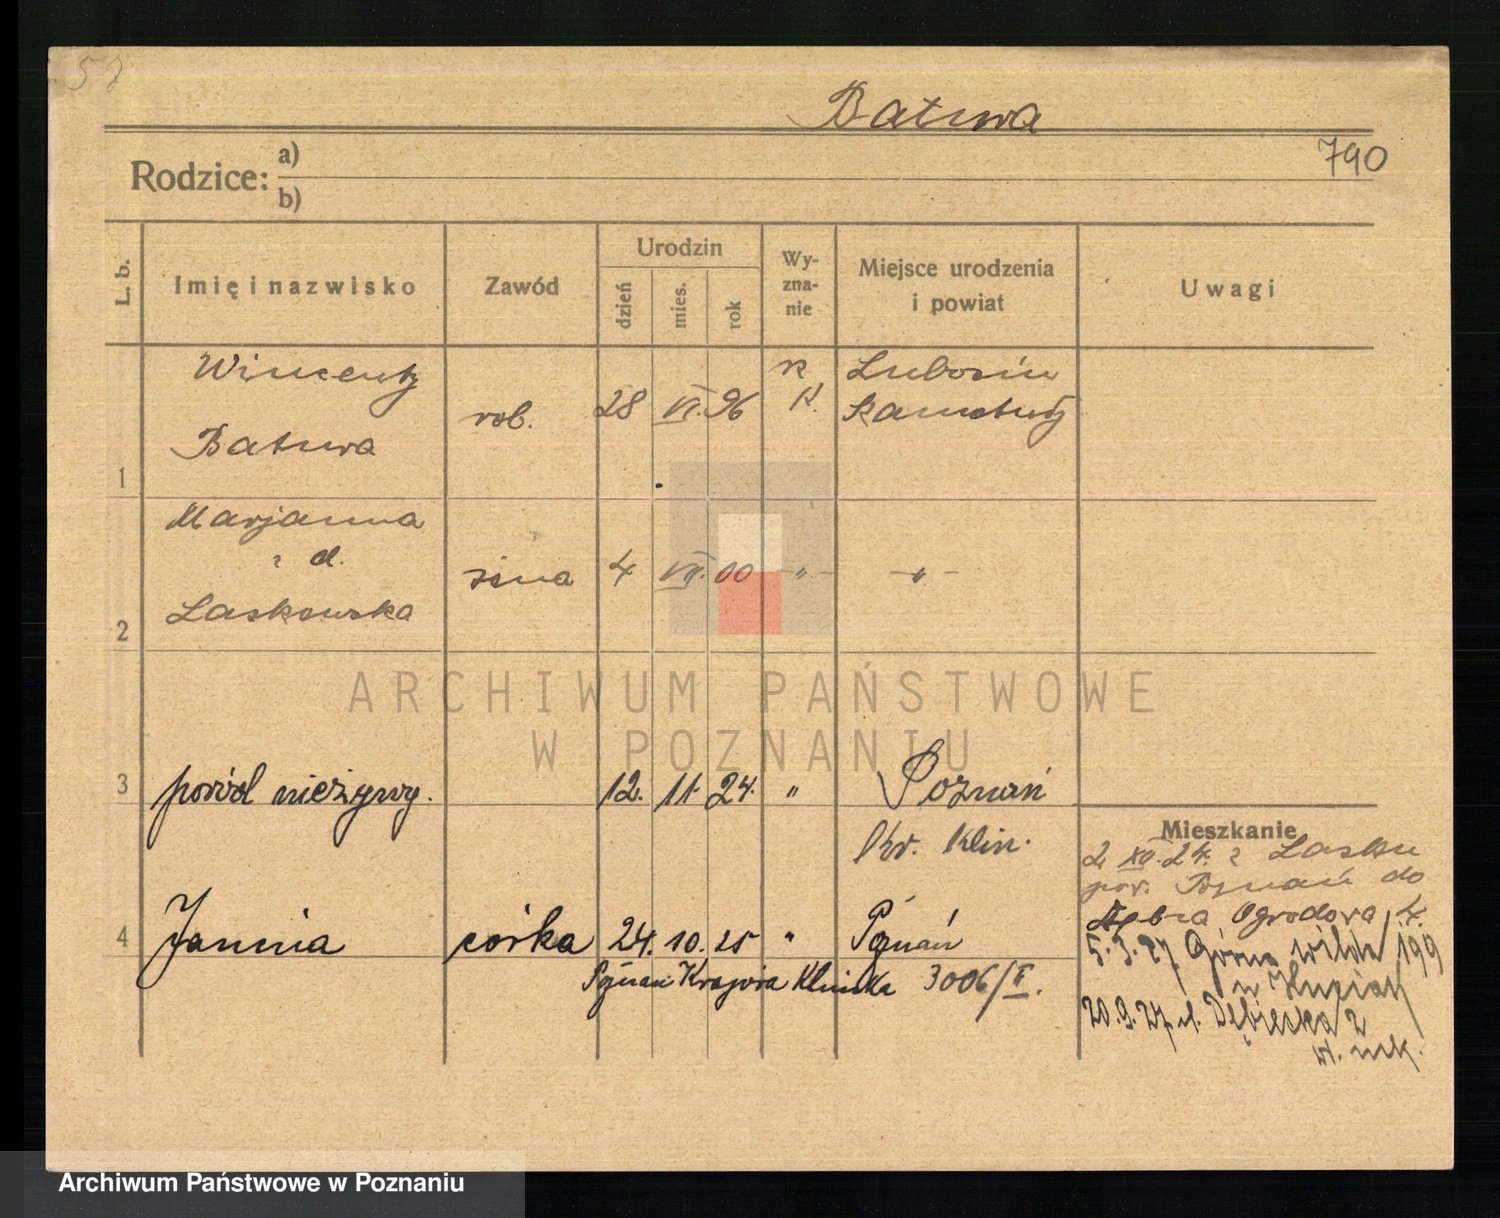 58
Baturа
790
Rodzice: a)
b)
L. b.
Imię i nazwisko
Zawód
Urodzin
dzień
mies.
rok
Wy-
zna-
nie
Miejsce urodzenia
i powiat
Uwagi
1
Wincenty
Batura
rob.
28 VI. 96
k
K.
Lubosin
2
Marjanna
z d.
Laskowska
żona
4 VII. 00 - " -
- " -
3
poród nieżywy.
12. 11. 24. "
Poznań
Kr. Klin.
4
Janina
córka
24. 10. 25 "
Poznań
Poznań Krajowa Klinika 3006/II.
Mieszkanie
2 XII. 24. z Lasku
pow. Poznań do
Dębca Ogrodowa 4.
5. 3. 27 Górna Wilda 199
20. 9. 27. ul. Dębiecka 2
ARCHIWUM PAŃSTWOWE
W POZNANIU
Archiwum Państwowe w Poznaniu